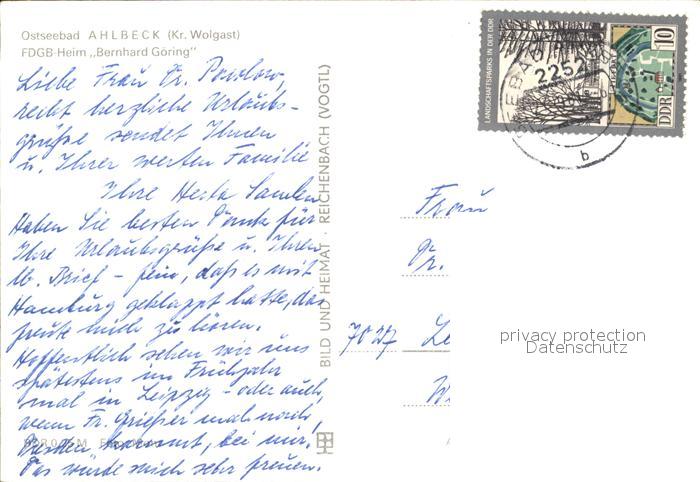 Ostseebad AHLBECK (Kr. Wolgast)
FDGB-Heim „Bernhard Göring"
Liebe Frau Dr.
recht herzliche Urlaubs-
grüße sendet Ihnen
u. Ihrer werten Familie
Ihre Herta
Haben Sie besten Dank für
Ihre Urlaubsgrüße u. Ihren
lb. Brief – fein, daß es mit
Hamburg geklappt hatte, das
freute mich zu hören.
Hoffentlich sehen wir uns
spätestens im Frühjahr
mal in Leipzig – oder auch,
wenn Fr. mal nach
Dresden kommt, bei mir.
Das würde mich sehr freuen.
BILD UND HEIMAT · REICHENBACH (VOGTL)
LANDSCHAFTSPARKS IN DER DDR
10
DDR
2252
b
Frau
Dr.
7027 Le
W
privacy protection
Datenschutz